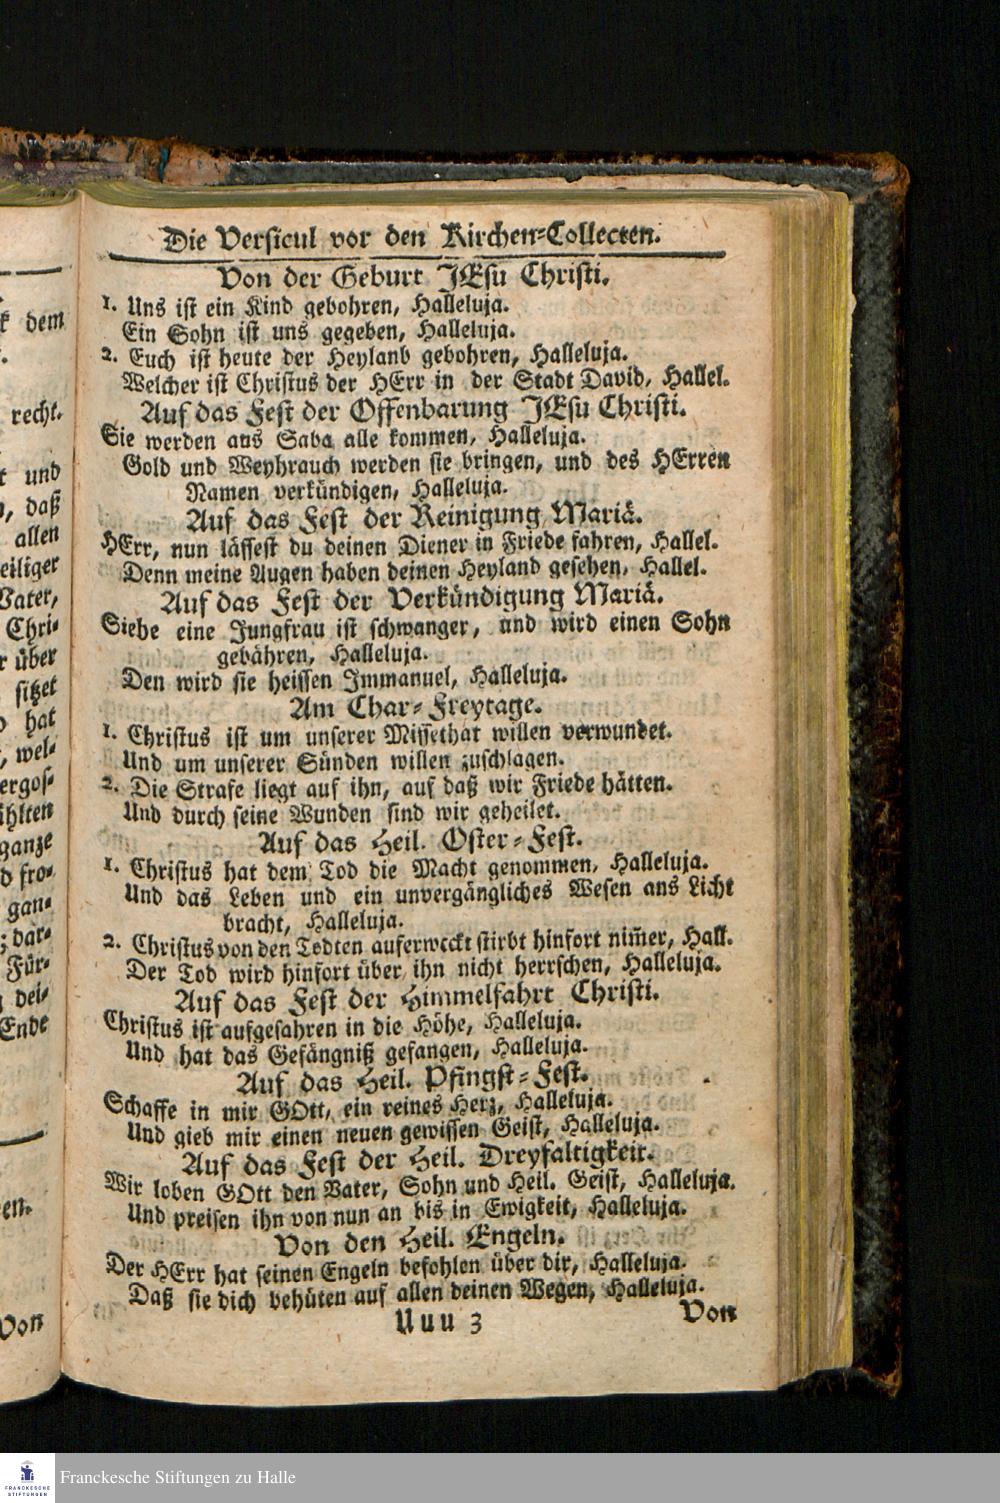 Die Versicul vor den Kirchen-Collecten.
Von der Geburt JEsu Christi.
1. Uns ist ein Kind gebohren, Halleluja.
Ein Sohn ist uns gegeben, Halleluja.
2. Euch ist heute der Heyland gebohren, Halleluja.
Welcher ist Christus der HErr in der Stadt David, Hallel.
Auf das Fest der Offenbarung JEsu Christi.
Sie werden aus Saba alle kommen, Halleluja.
Gold und Weyhrauch werden sie bringen, und des HErren
Namen verkündigen, Halleluja.
Auf das Fest der Reinigung Mariä.
HErr, nun lässest du deinen Diener in Friede fahren, Hallel.
Denn meine Augen haben deinen Heyland gesehen, Hallel.
Auf das Fest der Verkündigung Mariä.
Siehe eine Jungfrau ist schwanger, und wird einen Sohn
gebähren, Halleluja.
Den wird sie heissen Immanuel, Halleluja.
Am Char-Freytage.
1. Christus ist um unserer Missethat willen verwundet.
Und um unserer Sünden willen zuschlagen.
2. Die Strafe liegt auf ihn, auf daß wir Friede hätten.
Und durch seine Wunden sind wir geheilet.
Auf das Heil. Oster-Fest.
1. Christus hat dem Tod die Macht genommen, Halleluja.
Und das Leben und ein unvergängliches Wesen ans Licht
bracht, Halleluja.
2. Christus von den Todten auferweckt stirbt hinfort nim̃er, Hall.
Der Tod wird hinfort über ihn nicht herrschen, Halleluja.
Auf das Fest der Himmelfahrt Christi.
Christus ist aufgefahren in die Höhe, Halleluja.
Und hat das Gefängniß gefangen, Halleluja.
Auf das Heil. Pfingst-Fest.
Schaffe in mir GOtt, ein reines Herz, Halleluja.
Und gieb mir einen neuen gewissen Geist, Halleluja.
Auf das Fest der Heil. Dreyfaltigkeit.
Wir loben GOtt den Vater, Sohn und Heil. Geist, Halleluja.
Und preisen ihn von nun an bis in Ewigkeit, Halleluja.
Von den Heil. Engeln.
Der HErr hat seinen Engeln befohlen über dir, Halleluja.
Daß sie dich behüten auf allen deinen Wegen, Halleluja.
Uuu 3
Von
dem
recht.
und
daß
allen
eiliger
Vater,
Chri-
über
sitzet
hat
wel-
ergos-
ühlten
ganze
fro-
gan-
dar-
Für-
dei-
Ende
en.
Von
FRANCKESCHE
STIFTUNGEN
Franckesche Stiftungen zu Halle